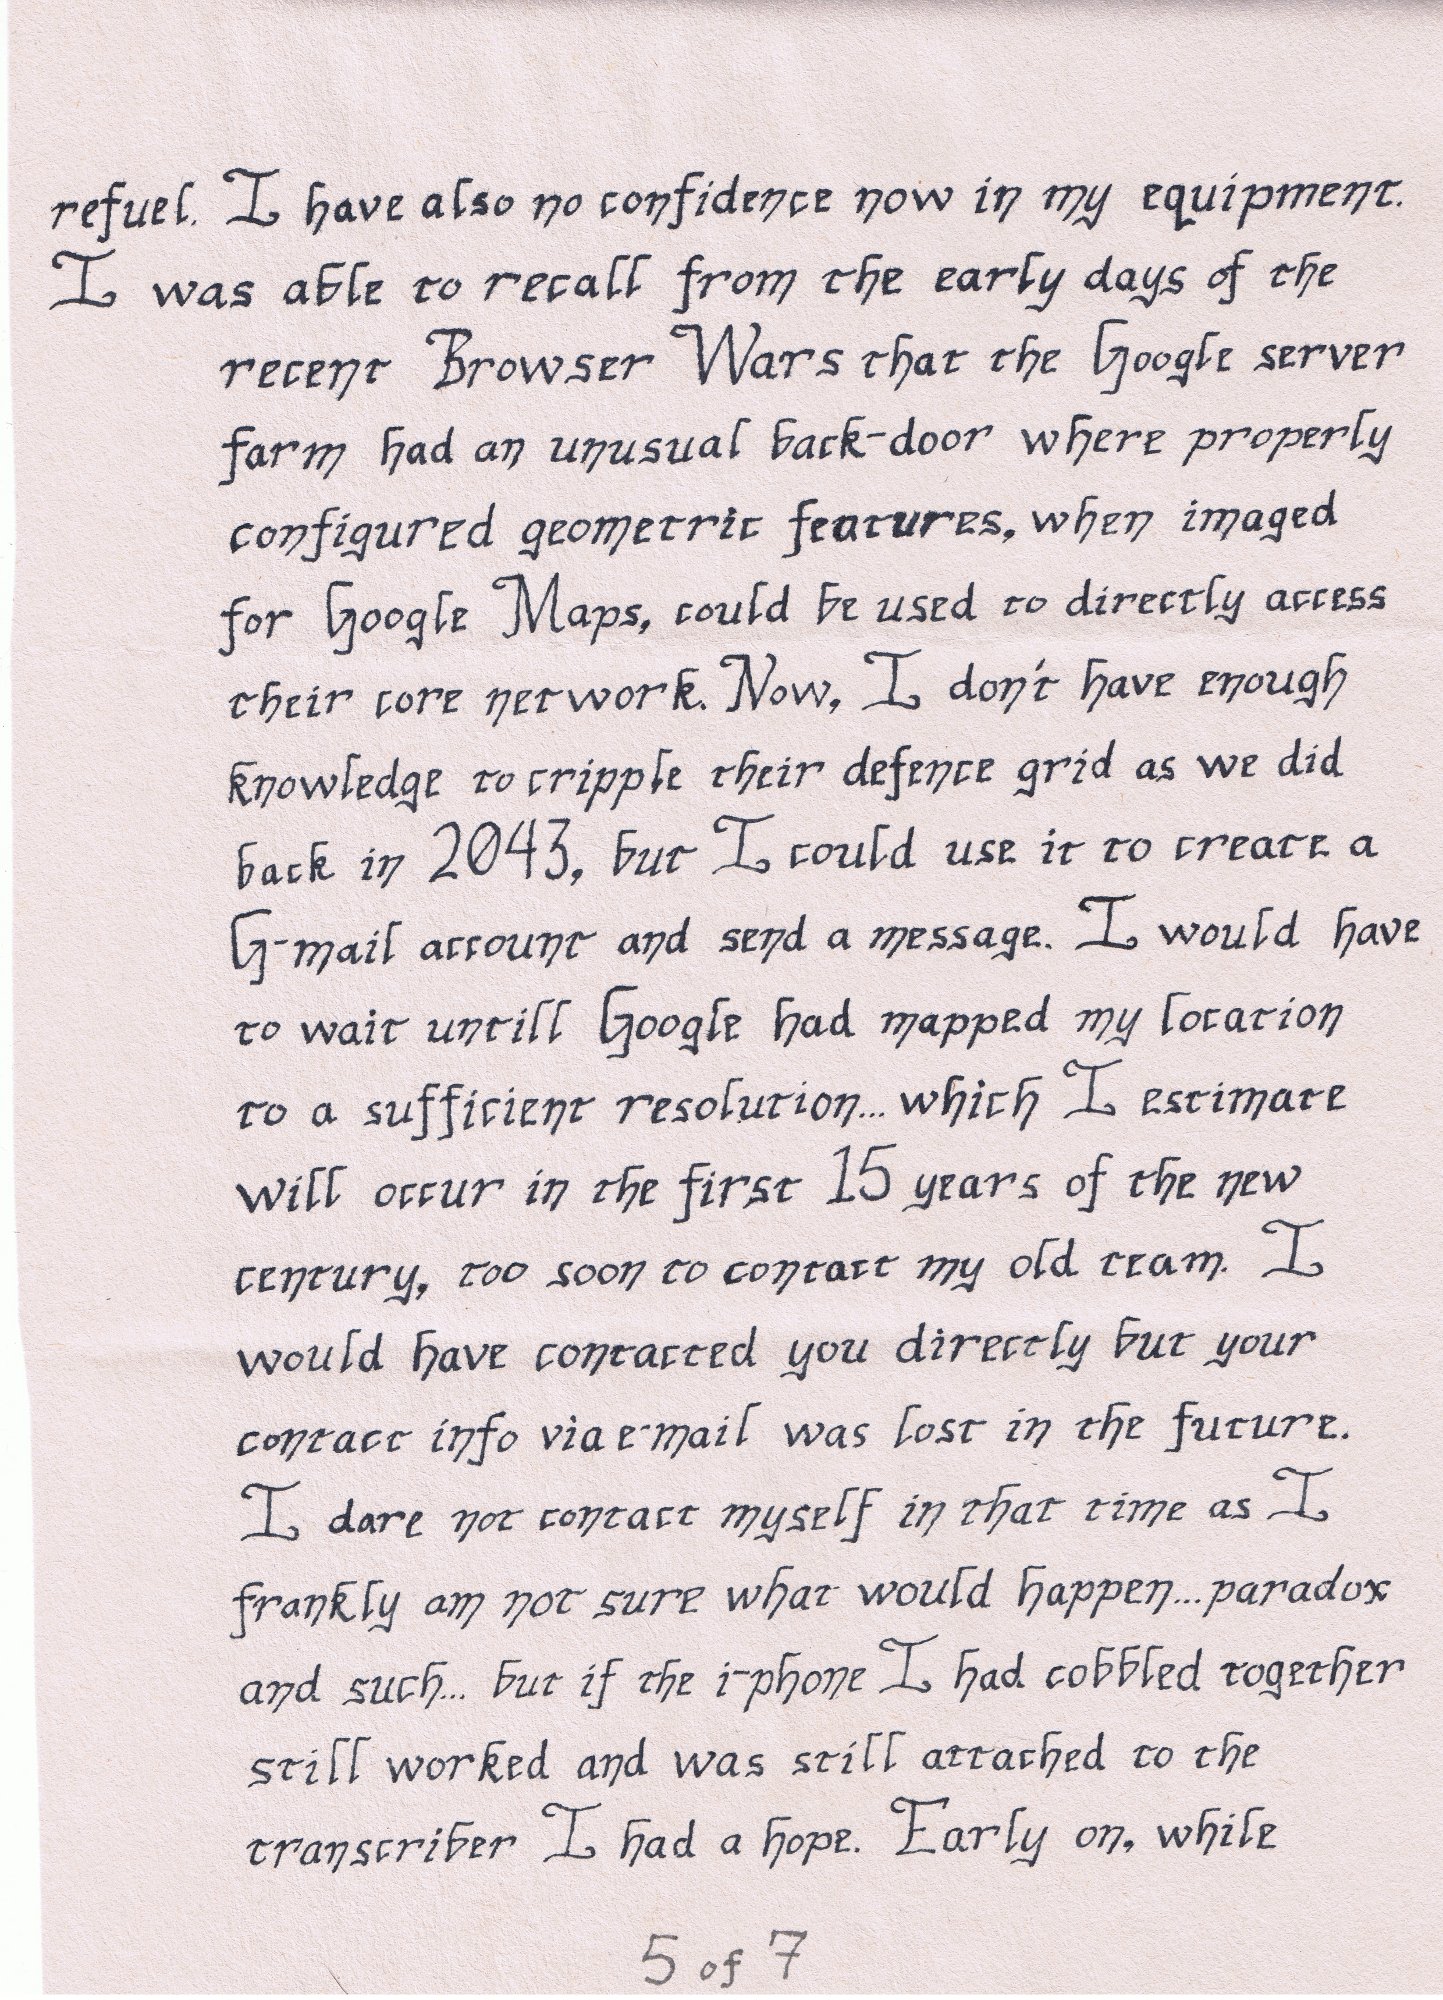 refuel. I have also no confidence now in my equipment.
I was able to recall from the early days of the
recent Browser Wars that the Google server
farm had an unusual back-door where properly
configured geometric features, when imaged
for Google Maps, could be used to directly access
their core network. Now, I don't have enough
knowledge to cripple their defence grid as we did
back in 2043, but I could use it to create a
G-mail account and send a message. I would have
to wait untill Google had mapped my location
to a sufficient resolution... which I estimate
will occur in the first 15 years of the new
century, too soon to contact my old team. I
would have contacted you directly but your
contact info via e-mail was lost in the future.
I dare not contact myself in that time as I
frankly am not sure what would happen... paradox
and such... but if the i-phone I had cobbled together
still worked and was still attached to the
transcriber I had a hope. Early on, while
5 of 7